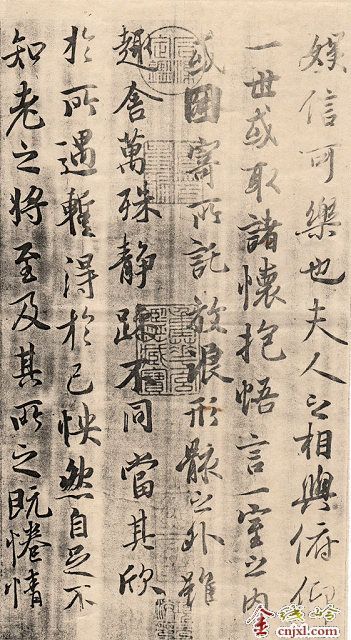 娛信可樂也夫人之相與俯仰
一世或取諸懷抱悟言一室之内
或因寄所託放浪形骸之外雖
趣舍萬殊静躁不同當其欣
於所遇暫得於己怏然自足不
知老之將至及其所之既惓情
cnjxl.com